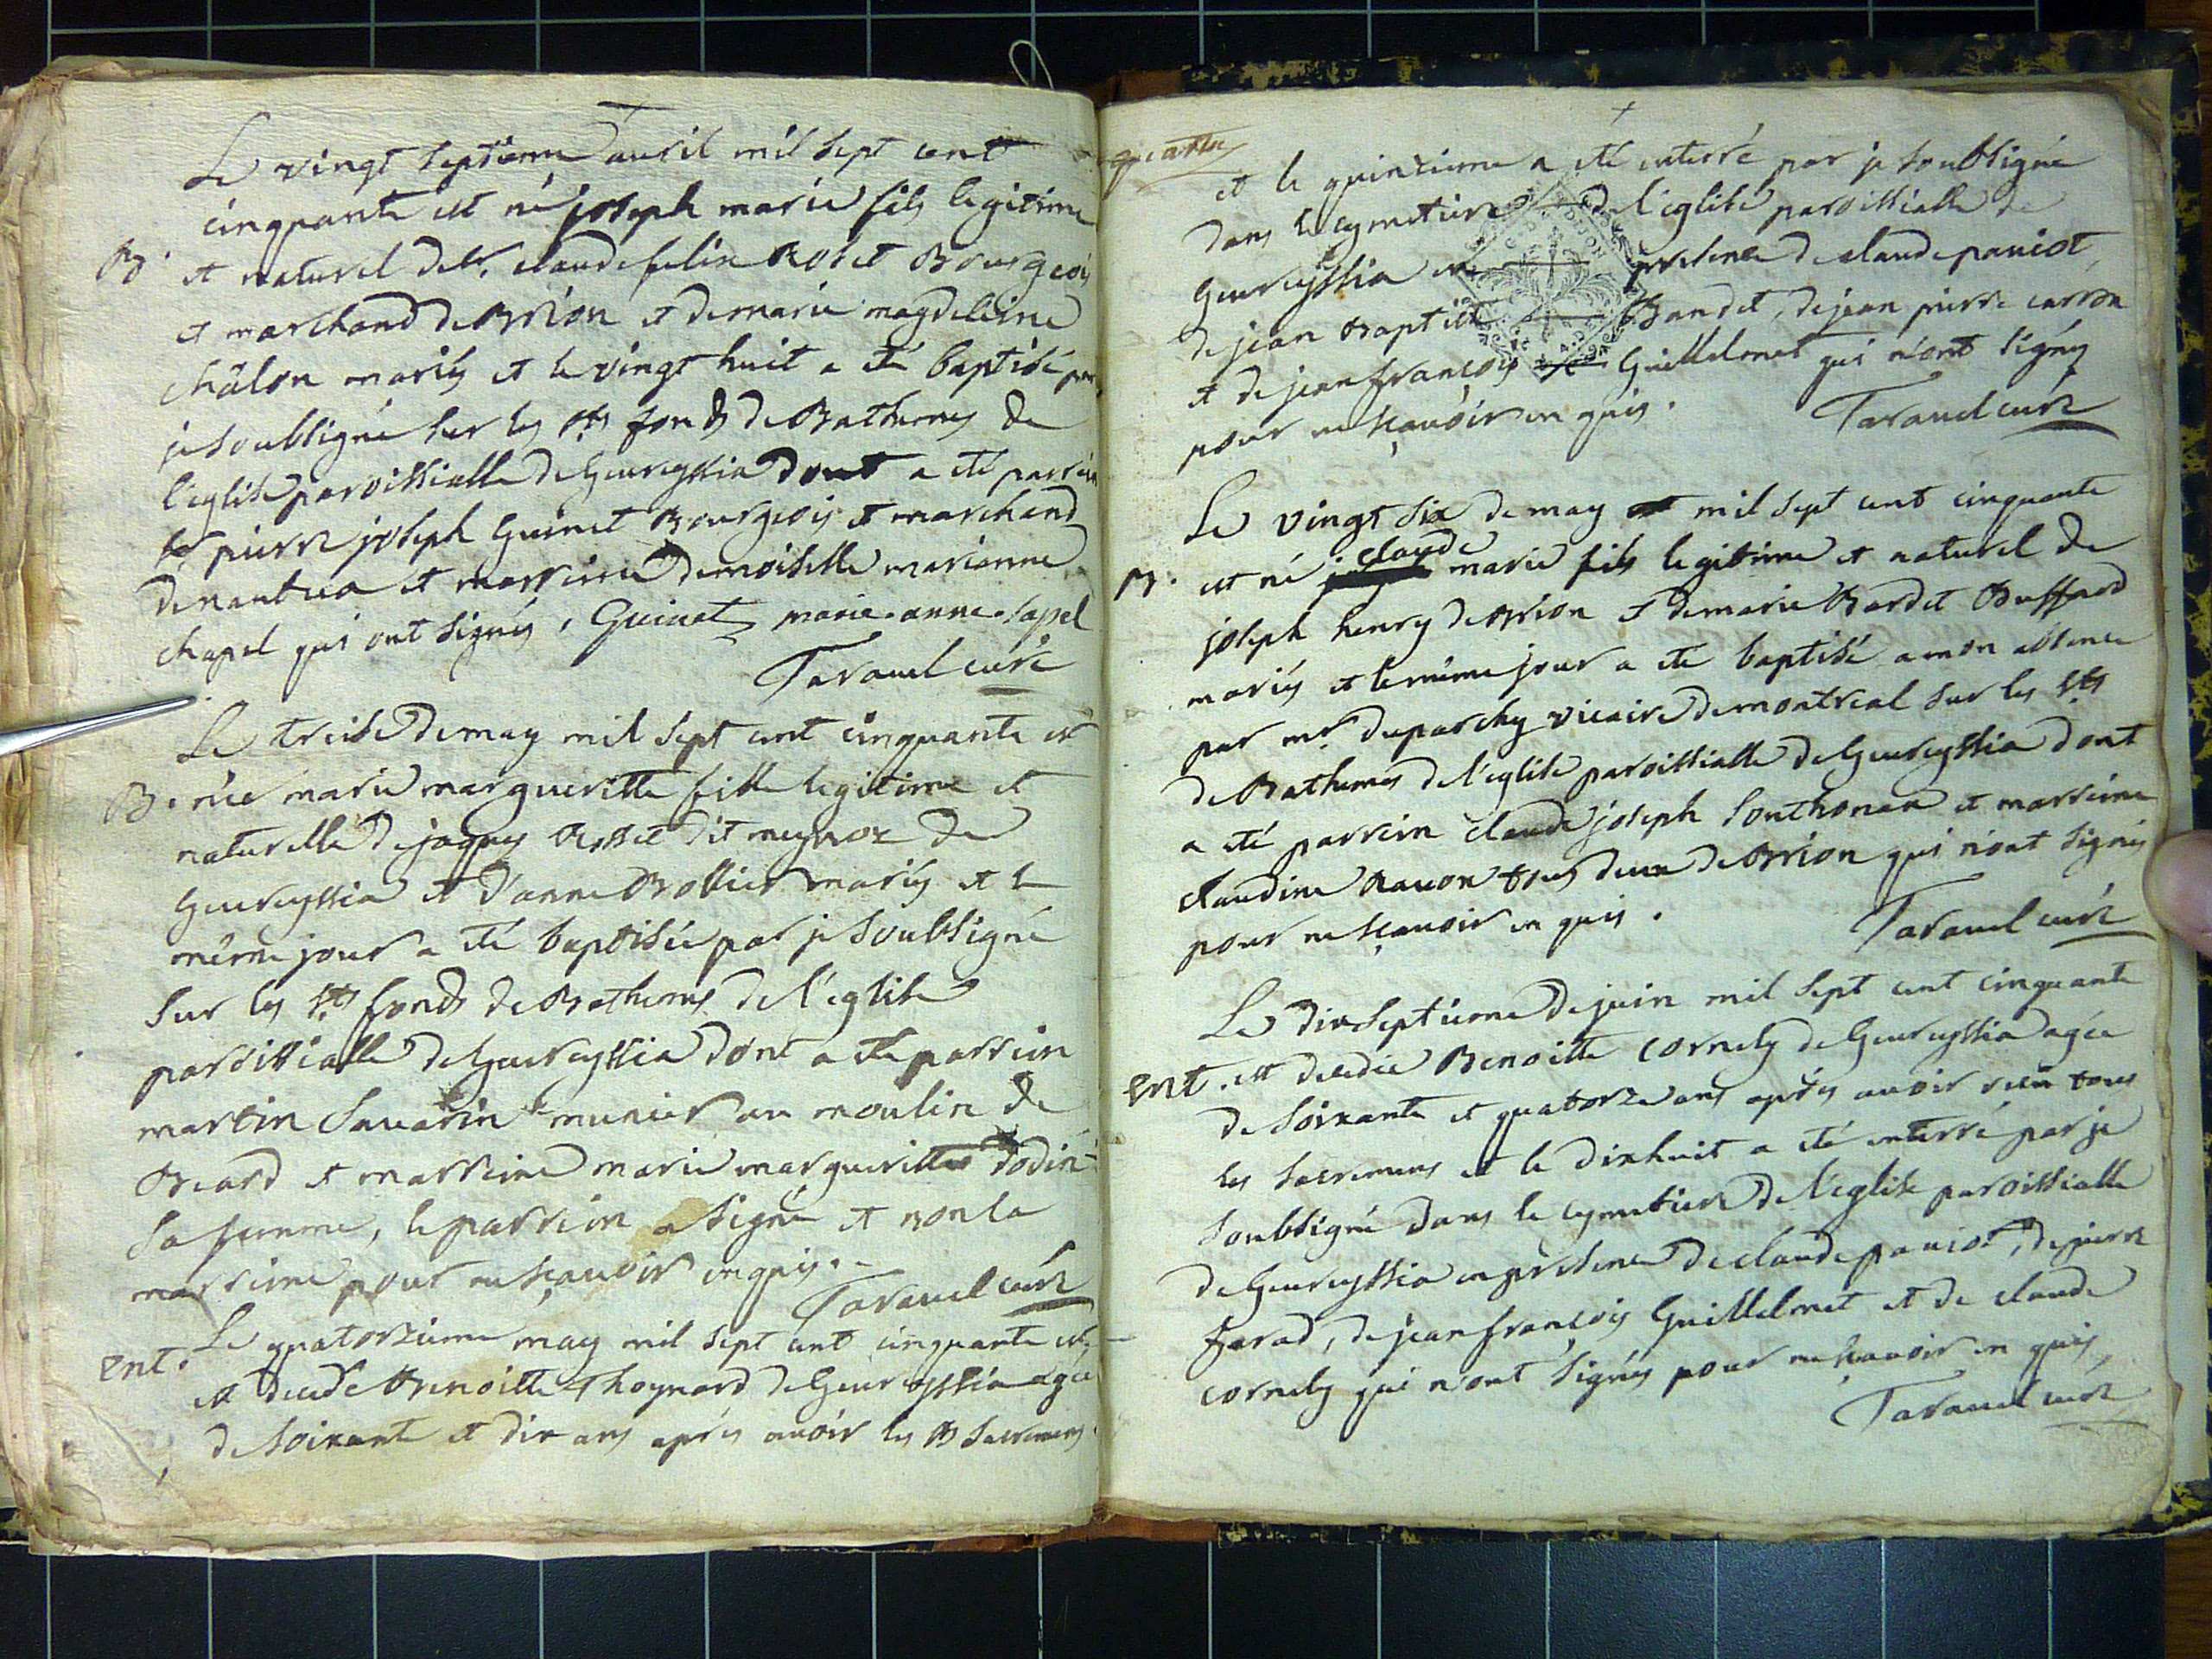 Le vingt septieme avril mil sept cent
cinquante est né joseph marie fils legitime
B. et naturel de sr. claude felix Rosset Bourgeois
et marchand de Brion et de marie magdeleine
châlon mariés et le vingt huit a été baptisé par
je soubsigné sur les sts fonds de Bathemes de
l'eglise paroissialle de Geureyssia dont a été parrein
sr pierre joseph Guinet Bourgeois et marchand
de nantua et marreine demoiselle marianne
chapel qui ont signés, Guinet marie-anne-sapel
Taravel curé
Le treise de may mil sept cent cinquante est
B. née marie margueritte fille legitime et
naturelle de jaques Rosset dit meynoz de
Geureyssia et d'anne Bollier mariés et le
même jour a été baptisée par je soubsigné
sur les sts fonds de Bathemes de l'eglise
paroissialle de Geureyssia dont a été parrein
martin Savarin munier au moulin de
Beard et marreine marie margueritte Dodin
sa femme, le parrein a signé et non la
marreine pour ne sçavoir enquis.
Taravel curé
ent. Le quatorzieme may mil sept cent cinquante
est decede Benoitte Thoynard de Geureyssia agée
de soixante et dix ans après avoir les sacremens
quatre
et le quinzieme a été enterré par je soubsigné
dans le cymetiere de l'eglise paroissialle de
Geureyssia en presence de claude paniot,
de jean Baptiste Bandet, de jean pierre carron
et de jean françois Guillelmet qui n'ont signés
pour ne sçavoir en quis.
Taravel curé
Le vingt six de may mil sept cent cinquante
claude
B. est né marie fils legitime et naturel de
joseph henry de Brion et de marie Bardet Buffard
mariés et le même jour a été baptisé a mon absence
par mr. duparchy vicaire de montreal sur les sts
de Bathemes de l'eglise paroissialle de Geureyssia dont
a été parrein claude joseph Southonax et marreine
claudine Ravon tous deux de Brion qui n'ont signés
pour ne sçavoir en quis.
Taravel curé
Le dix septieme de juin mil sept cent cinquante
ent. est decedée Benoitte Cornely de Geureyssia agée
de soixante et quatorze ans après avoir reçu tous
les sacremens et le dixhuit a été enterré par je
soubsigné dans le cymetiere de l'eglise paroissialle
de Geureyssia en presence de claude paniot, de pierre
farad, de jean françois Guillelmet et de claude
cornely qui n'ont signés pour ne sçavoir en quis,
Taravel curé